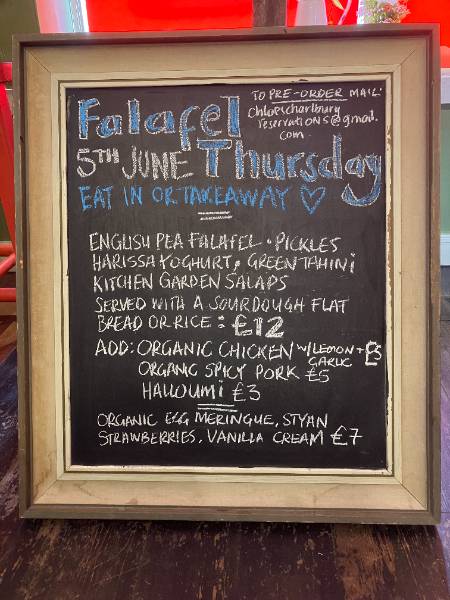 Falafel
TO PRE-ORDER MAIL:
Chloescharlbury
reservations@gmail.
com
5TH JUNE Thursday
EAT IN OR TAKEAWAY ♡
ENGLISH PEA FALAFEL • PICKLES
HARISSA YOGHURT, GREEN TAHINI
KITCHEN GARDEN SALADS
SERVED WITH A SOURDOUGH FLAT
BREAD OR RICE : £12
ADD: ORGANIC CHICKEN W/LEMON + £5
GARLIC
ORGANIC SPICY PORK £5
HALLOUMI £3
ORGANIC EGG MERINGUE, STYAN
STRAWBERRIES, VANILLA CREAM £7